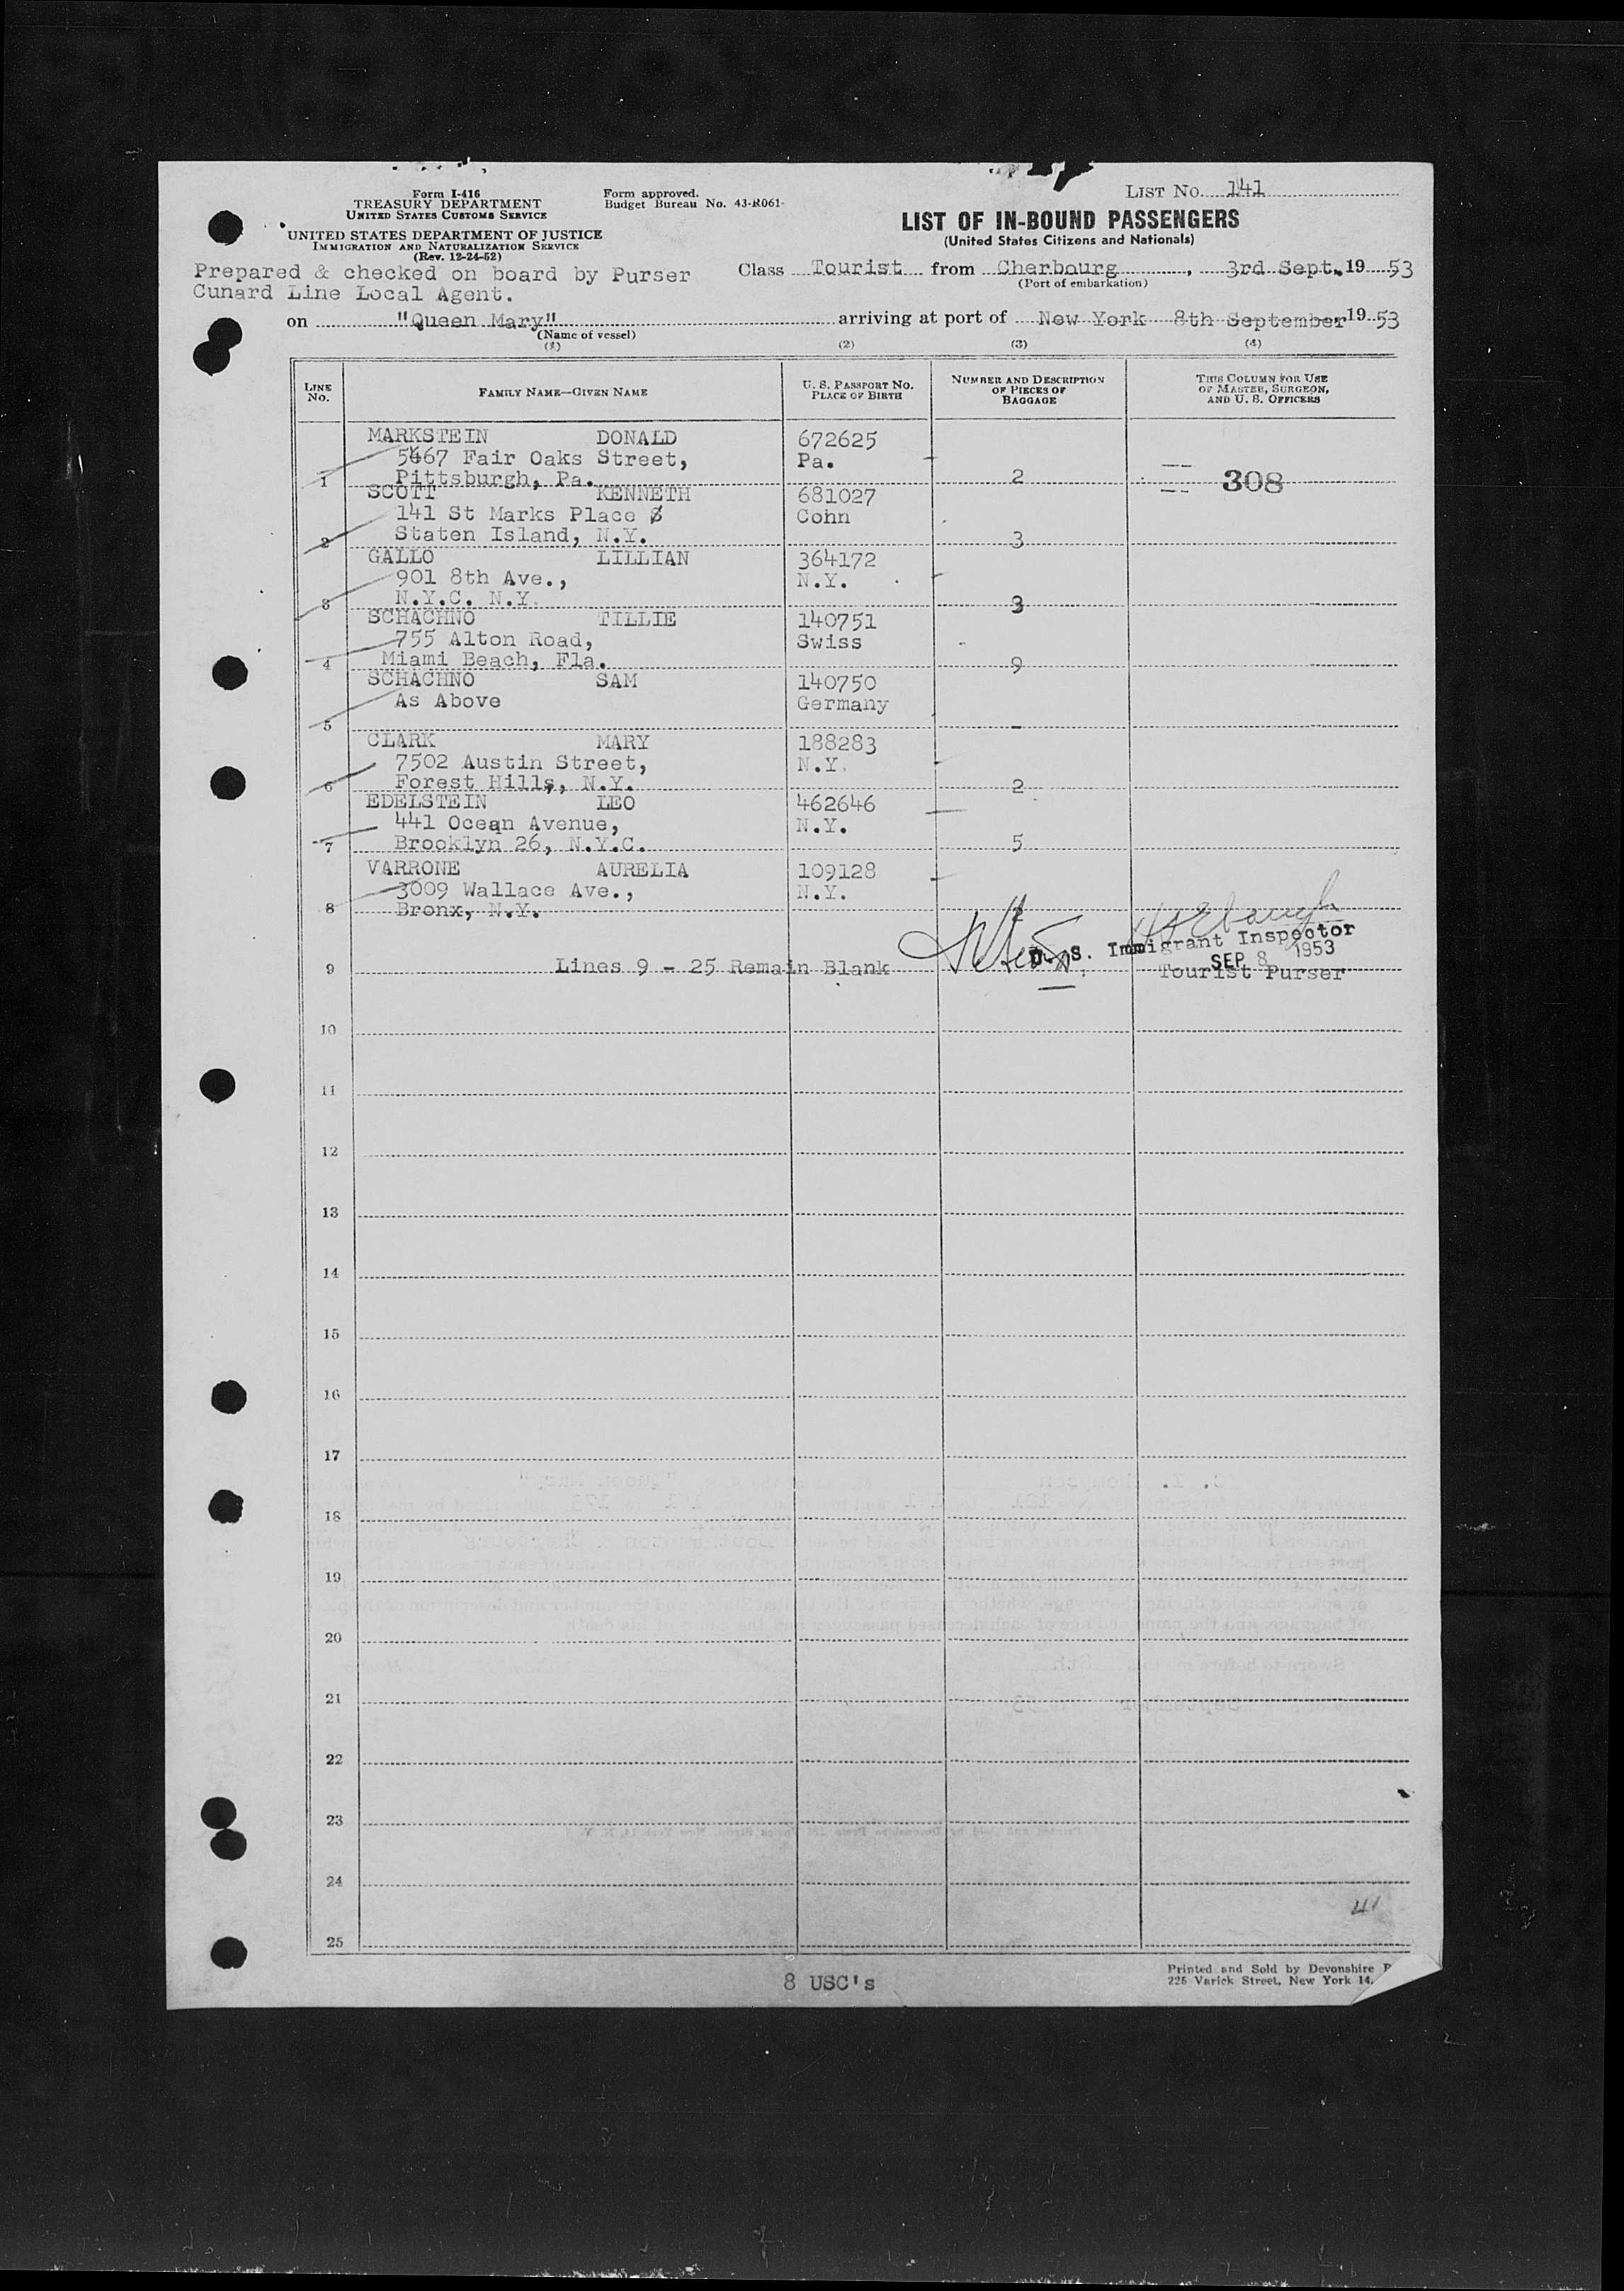 LIST No. 141
Form I-416
TREASURY DEPARTMENT
UNITED STATES CUSTOMS SERVICE
Form approved.
Budget Bureau No. 43-R061-
UNITED STATES DEPARTMENT OF JUSTICE
IMMIGRATION AND NATURALIZATION SERVICE
(Rev. 12-24-52)
LIST OF IN-BOUND PASSENGERS
(United States Citizens and Nationals)
Prepared & checked on board by Purser
Cunard Line Local Agent.
Class Tourist from Cherbourg, 3rd Sept. 19 53
(Port of embarkation)
on "Queen Mary" arriving at port of New York 8th September 19 53
(Name of vessel)
(1) (2) (3) (4)
LINE No. FAMILY NAME—GIVEN NAME U. S. PASSPORT No. PLACE OF BIRTH NUMBER AND DESCRIPTION OF PIECES OF BAGGAGE THIS COLUMN FOR USE OF MASTER, SURGEON, AND U. S. OFFICERS
MARKSTEIN DONALD 672625
5467 Fair Oaks Street, Pa.
1 Pittsburgh, Pa. 2 308
SCOTT KENNETH 681027
141 St Marks Place Cohn
2 Staten Island, N.Y. 3
GALLO LILLIAN 364172
901 8th Ave., N.Y.
3 N.Y.C. N.Y. 3
SCHACHNO TILLIE 140751
755 Alton Road, Swiss
4 Miami Beach, Fla. 9
SCHACHNO SAM 140750
As Above Germany
5 -
CLARK MARY 188283
7502 Austin Street, N.Y.
6 Forest Hills, N.Y. 2
EDELSTEIN LEO 462646
441 Ocean Avenue, N.Y.
7 Brooklyn 26, N.Y.C. 5
VARRONE AURELIA 109128
3009 Wallace Ave., N.Y.
8 Bronx, N.Y. 2
U. S. Immigrant Inspector
SEP 8 1953
9 Lines 9 - 25 Remain Blank Tourist Purser
10
11
12
13
14
15
16
17
18
19
20
21
22
23
24
41
25
8 USC's
Printed and Sold by Devonshire
225 Varick Street, New York 14,